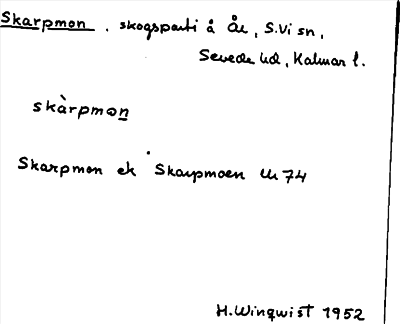 Skarpmon . skogsparti å Åe, S.Vi sn,
Sevede hd, Kalmar l.
skàrpmon
Skarpmon ek Skarpmoen Lu 74
H. Winqwist 1952